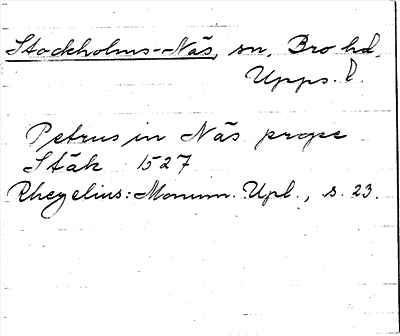 Stockholms-Näs, sn, Bro hd.
Upps. l.
Petrus in Näs prope
Stäk 1527
Rhezelius: Monum. Upl., s. 23.